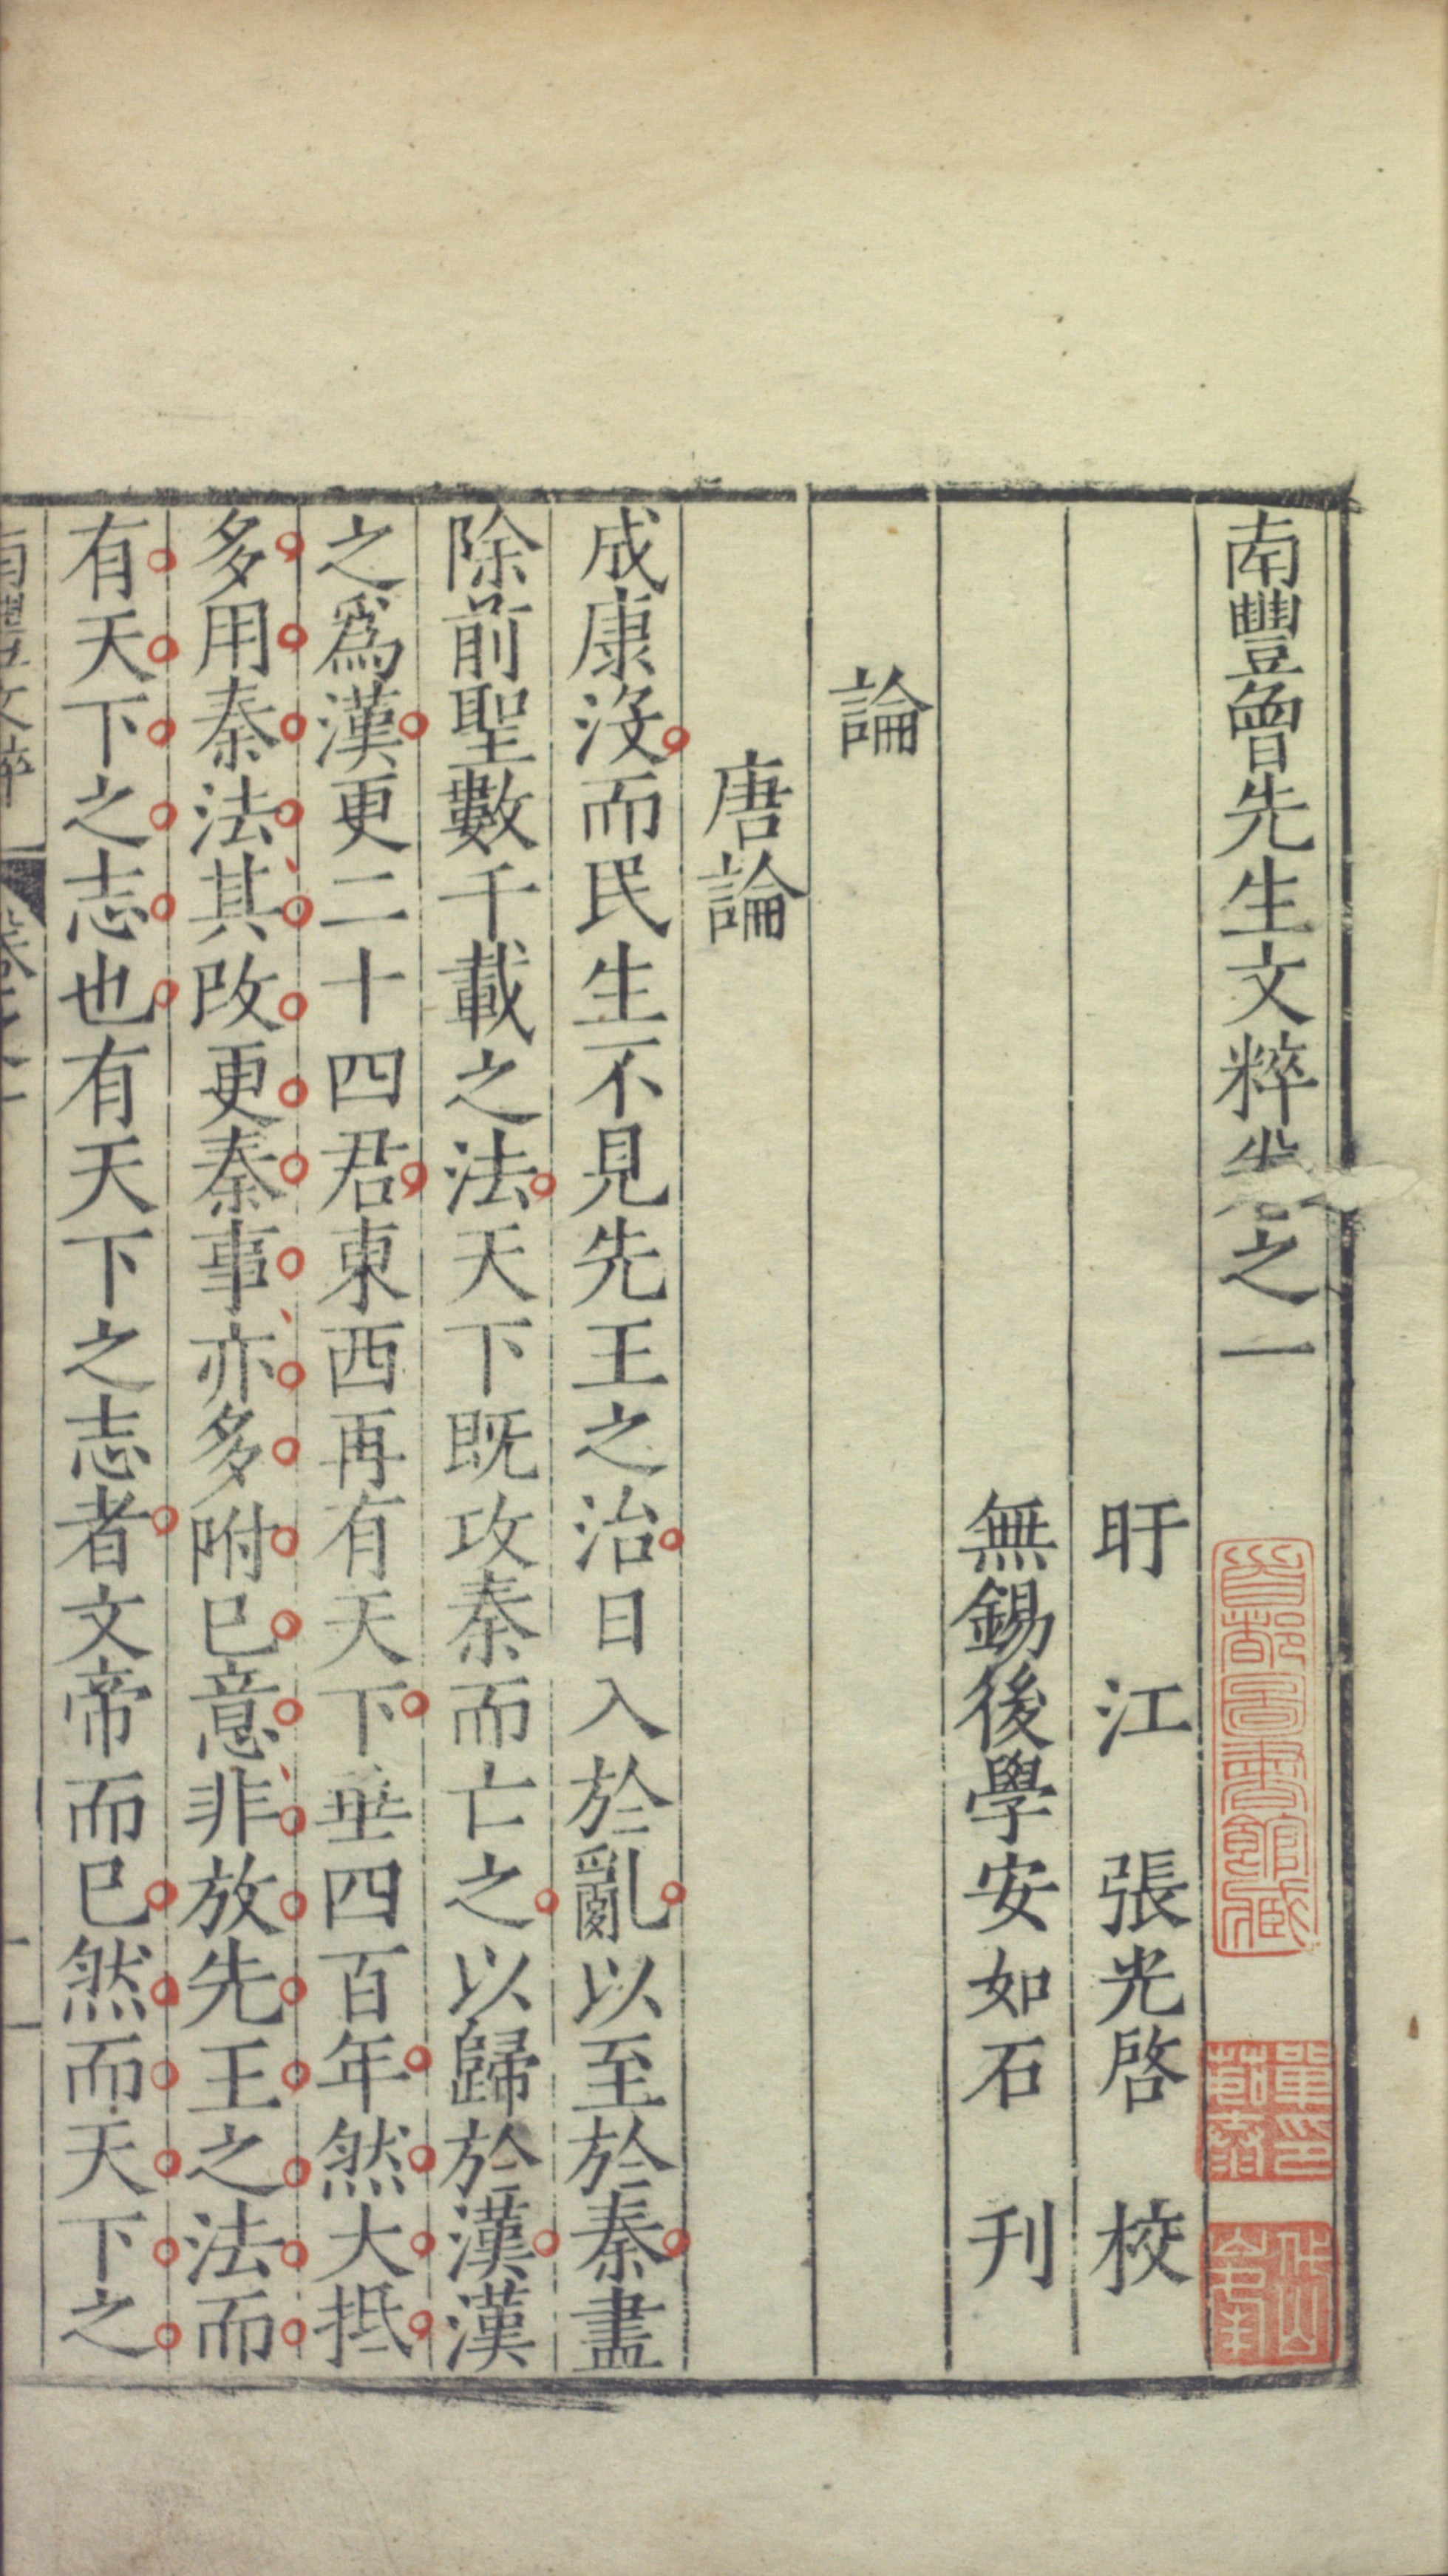 南豐曾先生文粹卷之一
首都圖書館藏
盱江張光啓校
無錫後學安如石刊
論
唐論
成康没而民生不見先王之治日入於亂以至於秦盡
除前聖數千載之法天下既攻秦而亡之以歸於漢漢
之爲漢更二十四君東西再有天下垂四百年然大抵
多用秦法其改更秦事亦多附已意非放先王之法而
有天下之志也有天下之志者文帝而已然而天下之
南豐文粹 卷之一